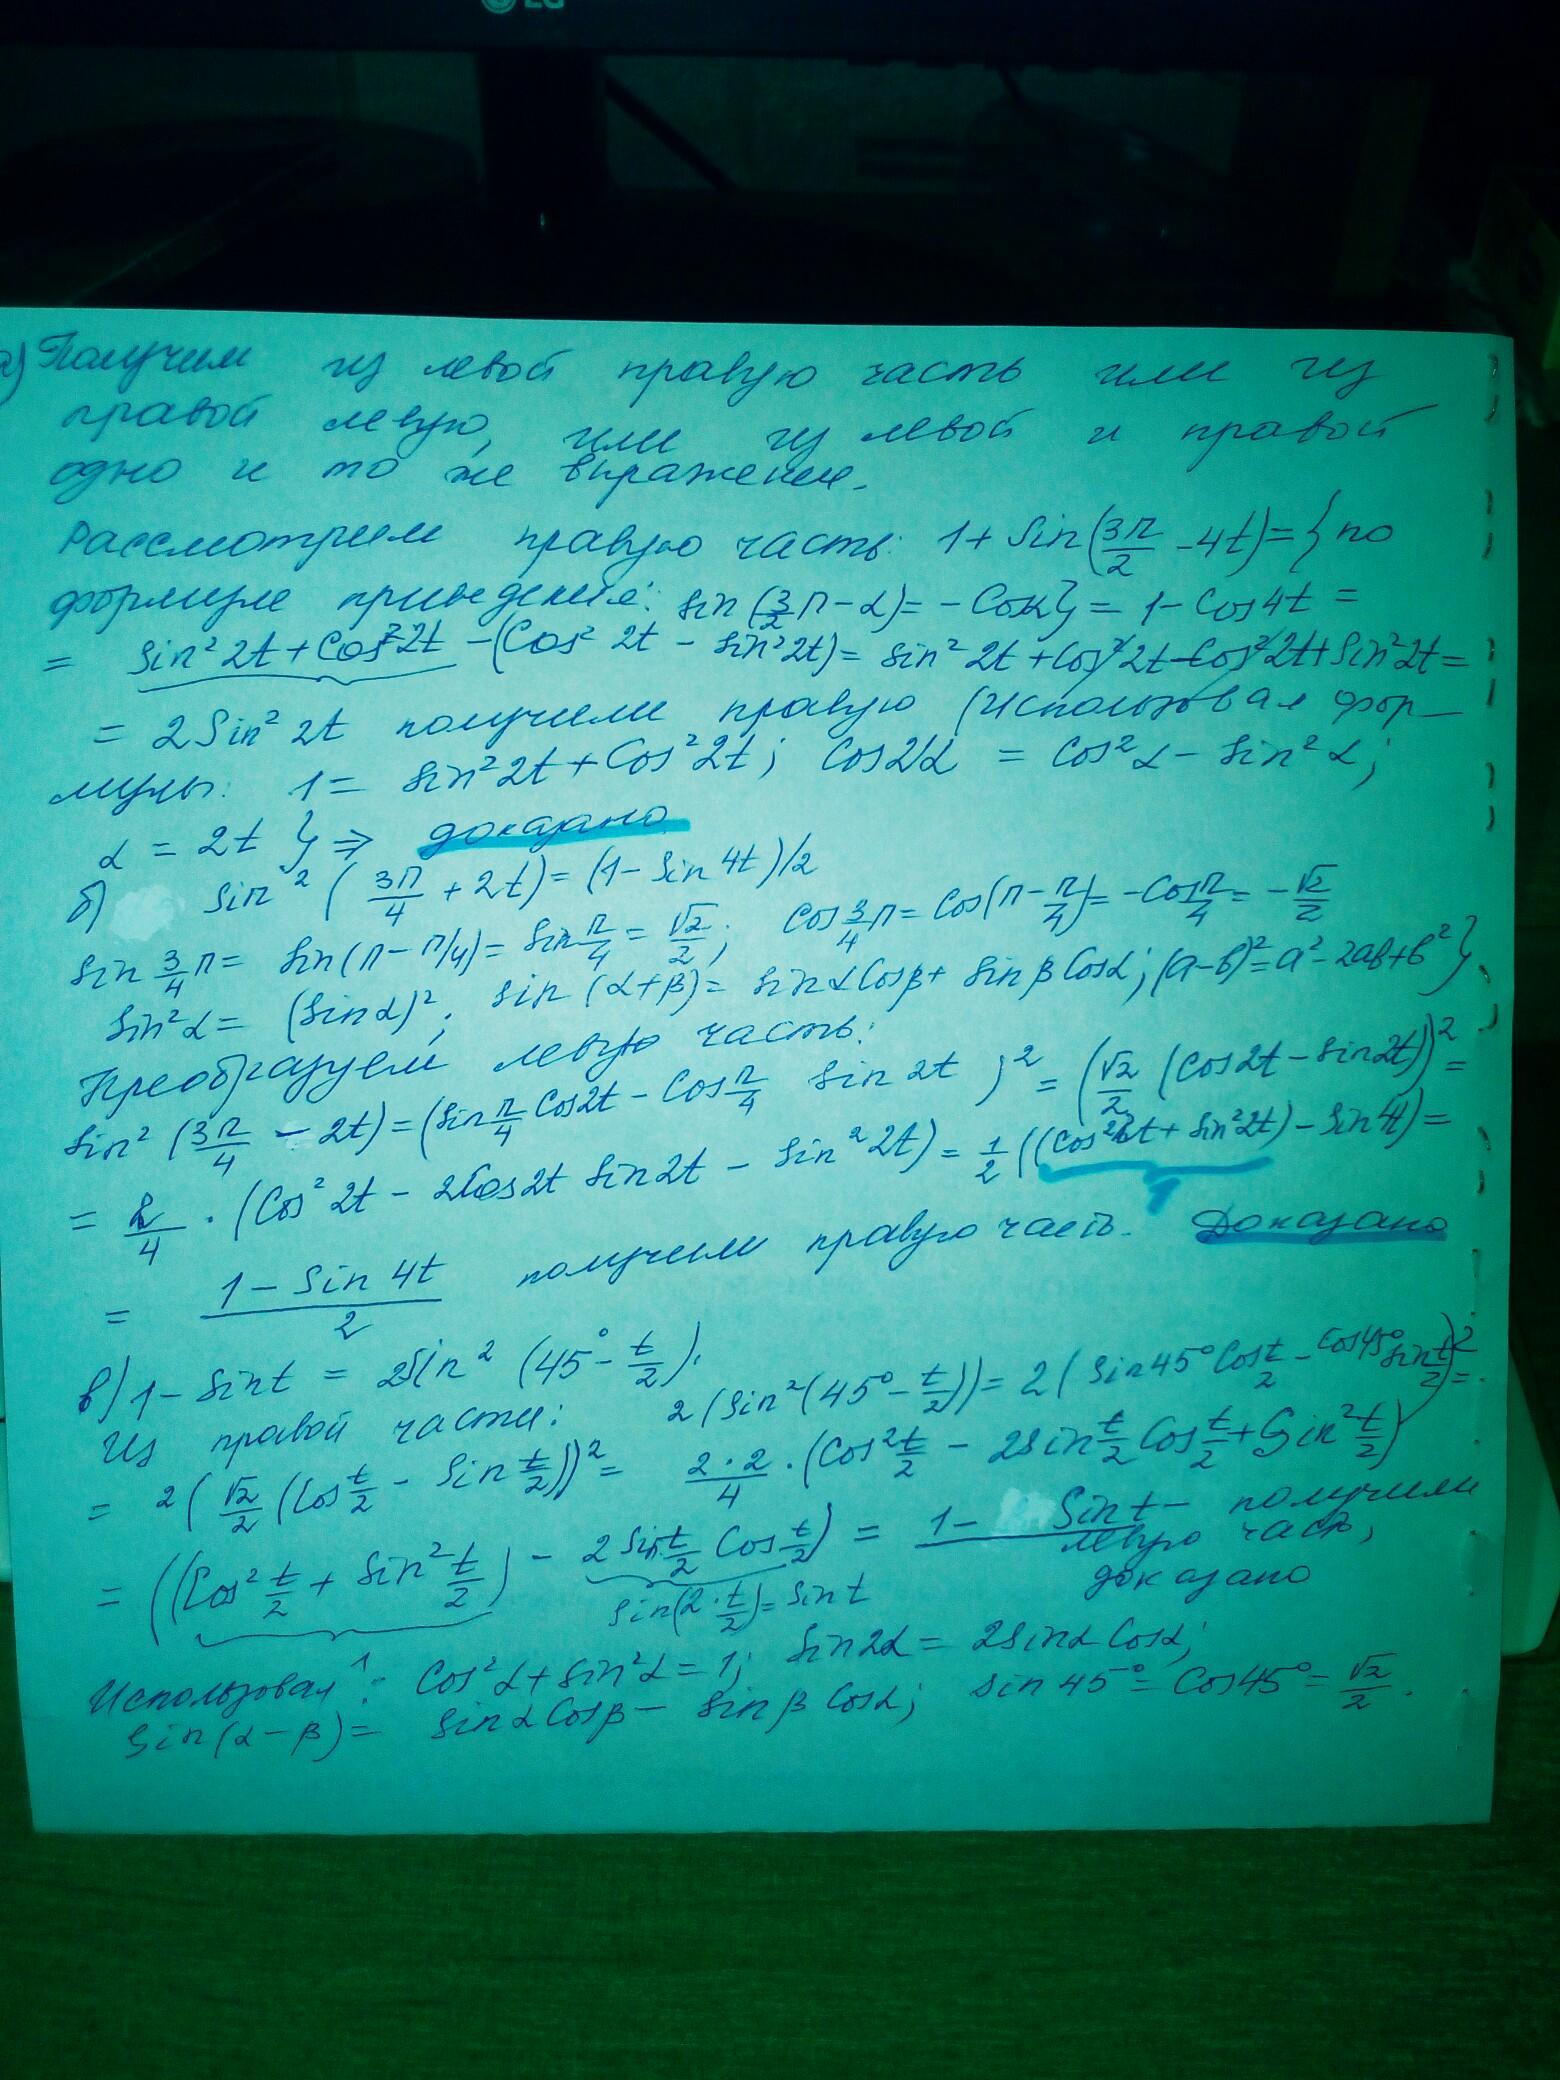 LG
а) Получим из левой правую часть или из
правой левую, или из левой и правой
одно и то же выражение.
Рассмотрим правую часть: 1 + Sin(3π/2 - 4t) = { по
формуле приведения: sin(3/2 π - α) = - Cosα } = 1 - Cos4t =
= Sin² 2t + Cos² 2t - (Cos² 2t - Sin² 2t) = Sin² 2t + Cos² 2t - Cos² 2t + Sin² 2t =
= 2Sin² 2t получили правую (использовал фор-
мулы: 1 = Sin² 2t + Cos² 2t; Cos2α = Cos² α - Sin² α;
α = 2t } ⇒ доказано
б) Sin² (3π/4 + 2t) = (1 - Sin 4t)/2
Sin 3/4 π = Sin(π - π/4) = Sin π/4 = √2/2; Cos 3/4 π = Cos(π - π/4) = - Cos π/4 = - √2/2
Sin² α = (Sin α)²; Sin(α+β) = SinαCosβ + Sinβ Cosα; (a-b)² = a² - 2ab + b² }
Преобразуем левую часть:
Sin² (3π/4 - 2t) = (Sin π/4 Cos2t - Cos π/4 Sin 2t)² = (√2/2 (Cos2t - Sin2t))² =
= 2/4 · (Cos² 2t - 2Cos2t Sin2t - Sin² 2t) = 1/2 ((Cos² 2t + Sin² 2t) - Sin4t) =
1
= (1 - Sin 4t)/2 получили правую часть. Доказано
в) 1 - Sint = 2Sin² (45° - t/2).
Из правой части: 2(Sin²(45° - t/2)) = 2(Sin45° Cos t/2 - Cos45° Sin t/2)² =
= 2(√2/2 (Cos t/2 - Sin t/2))² = 2·2/4 · (Cos² t/2 - 2Sin t/2 Cos t/2 + Sin² t/2)
= ((Cos² t/2 + Sin² t/2) - 2 Sin t/2 Cos t/2) = 1 - Sint - получили
левую часть,
1 Sin(2·t/2) = Sin t доказано
Использовал: Cos² α + Sin² α = 1; Sin2α = 2Sinα Cosα;
Sin(α - β) = SinαCosβ - Sinβ Cosα; Sin 45° = Cos45° = √2/2.